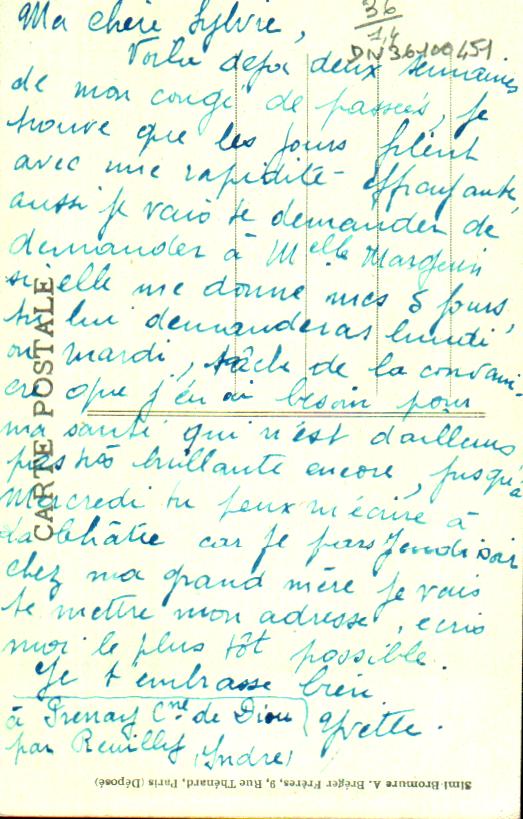 36
1,4
DN36100451
Ma chère Sylvie,
Voilà déja deux semaines
de mon congé de passées, je
trouve que les jours filent
avec une rapidité effrayante,
aussi je vais te demander de
demander à Melle Marguin
si elle me donne mes 8 jours,
tu lui demanderas lundi
ou mardi, tâche de la convain-
cre que j'en ai besoin pour
ma santé qui n'est d'ailleurs
pas très brillante encore, jusqu'à
Mercredi tu peux m'écrire à
La Châtre car je pars Jeudi soir
chez ma grand mère je vais
te mettre mon adresse, écris
moi le plus tôt possible.
Je t'embrasse bien
Yvette.
à Prenay Cne de Diou
par Reuilly (Indre)
CARTE POSTALE
Simi-Bromure A. Bréger Frères, 9, Rue Thénard, Paris (Déposé)